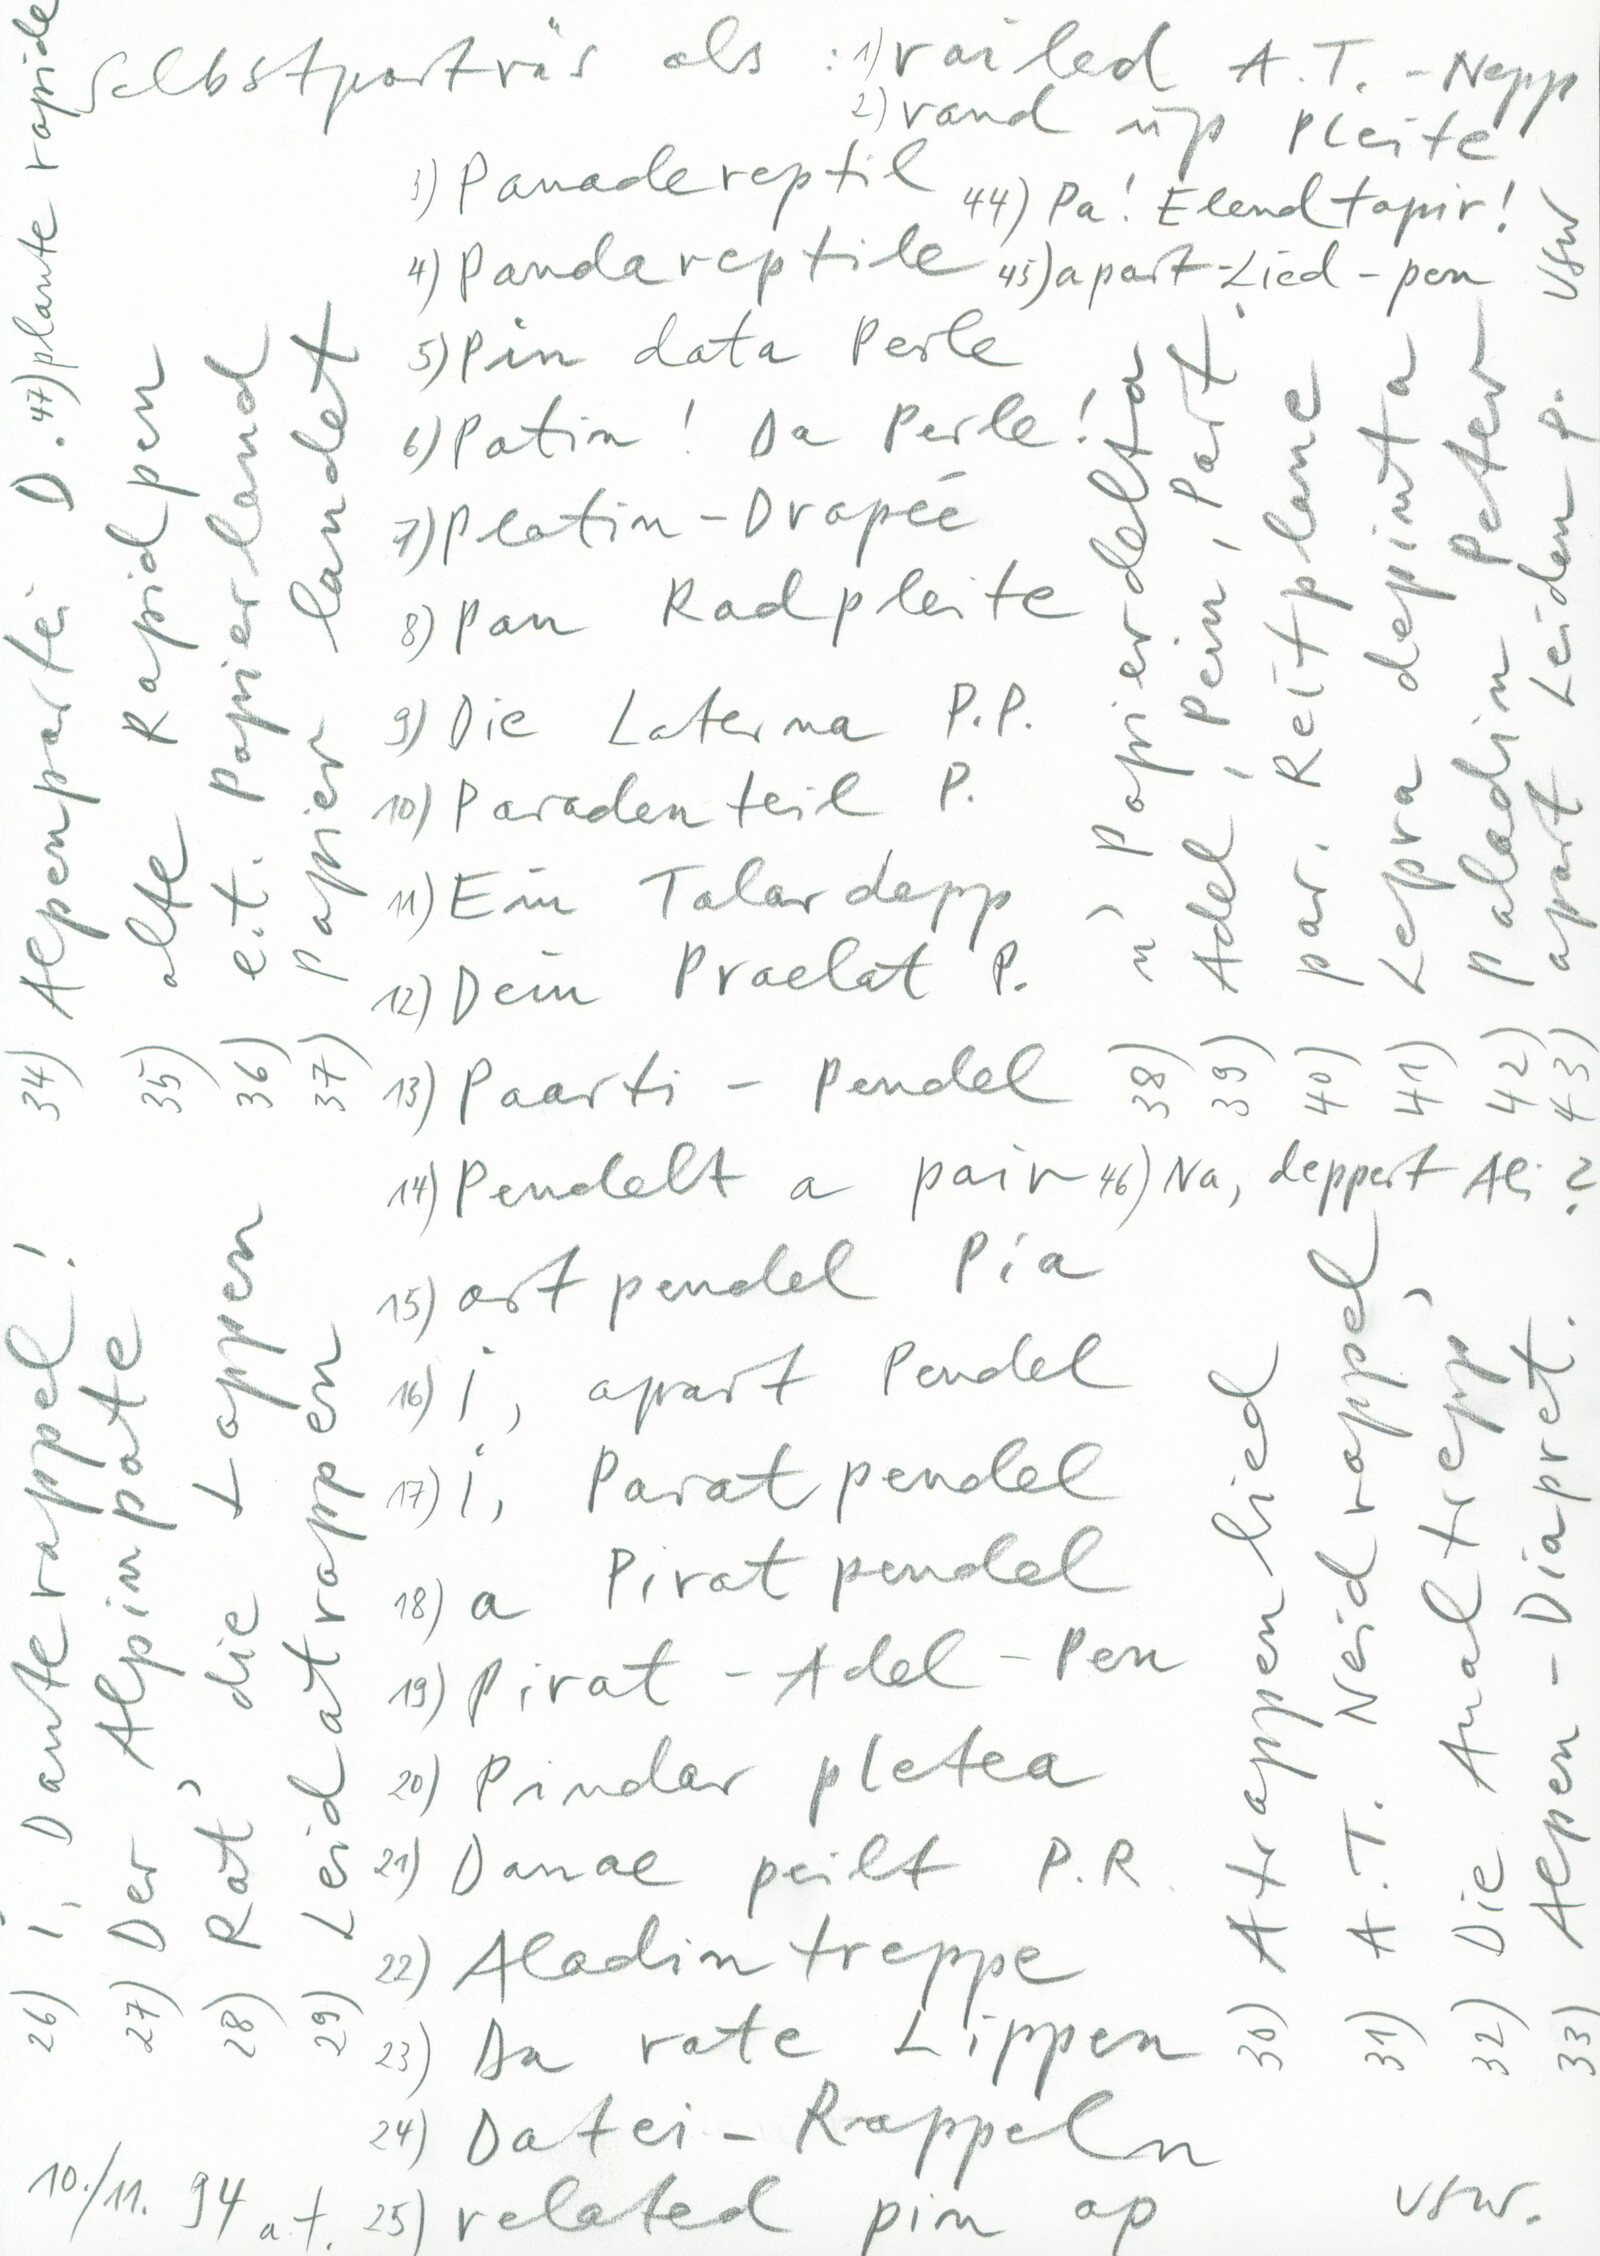 Selbstporträs als : 1) railed A.T. - Nepp
2) rand ap Pleite
3) Panadereptil
4) Pandareptile
5) Pin data Perle
6) Patin! Da Perle!
7) Platin-Drapée
8) Pan Radpleite
9) Die Laterna P.P.
10) Paradenteil P.
11) Ein Talardepp
12) Dein Praelat P.
13) Paarti - pendel
14) Pendelt a pair
15) art pendel Pia
16) i, apart Pendel
17) i, Paratpendel
18) a Piratpendel
19) Pirat - Adel - Pen
20) Pindar pletea
21) Danae peilt P.R.
22) Aladintreppe
23) Da rate Lippen
24) Datei - Rappeln
25) related pin ap
26) i, Danterappel!
27) Der Alpinpate
28) Rat, die Lappen
29) Leidatrappen
30) Atrappenlied
31) A.T. Neidrappel,
32) Die Analtrepp'
33) Alpen - Diapret.
34) Alpenpartei D.
35) alte Rapidpen
36) e.t. Papierland
37) Papier landet
38) n' Papierdelta
39) Adel, Pein, Part.
40) par. Reitplane
41) Lepra depinta
42) Paladin Peter
43) apart Leiden p.
44) Pa! Elendtapir!
45) apart-Lied-pen
46) Na, deppert Ali?
47) plante rapide
usw
usw.
10./11. 94 a.t.